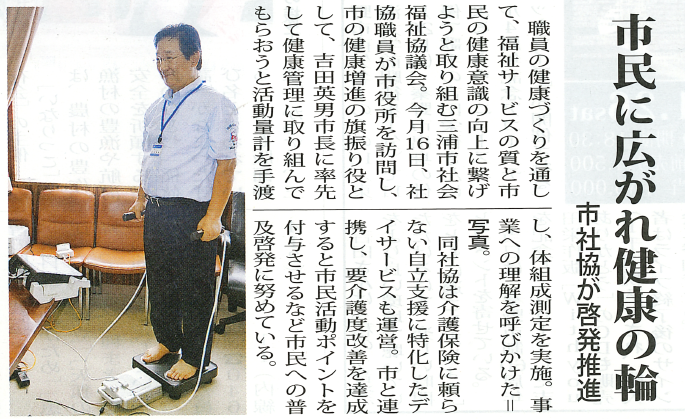 市民に広がれ健康の輪
市社協が啓発推進
職員の健康づくりを通し
て、福祉サービスの質と市
民の健康意識の向上に繋げ
ようと取り組む三浦市社会
福祉協議会。今月16日、社
協職員が市役所を訪問し、
市の健康増進の旗振り役と
して、吉田英男市長に率先
して健康管理に取り組んで
もらおうと活動量計を手渡
し、体組成測定を実施。事
業への理解を呼びかけた＝
写真。
同社協は介護保険に頼ら
ない自立支援に特化したデ
イサービスも運営。市と連
携し、要介護度改善を達成
すると市民活動ポイントを
付与させるなど市民への普
及啓発に努めている。